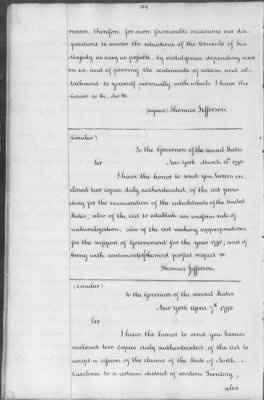 112
reserve, therefore, for more favourable occasions our dis-
positions to render the situations of the Consuls of his
Majesty as easy as possible, by indulgences depending more
on us, and of proving the sentiments of esteem and at-
tachment to yourself personally with which I have the
honor to be, Sir &c
(signed) Thomas Jefferson
(Circular)
To the Governors of the several States
Sir New York March 31st 1790
I have the honor to send you herein en-
closed two copies, duly authenticated, of the act provi
ding for the enumeration of the inhabitants of the United
States; also of the act to establish an uniform rule of
naturalization; also of the act making appropriations
for the support of Government for the year 1790; and of
being with sentiments of the most perfect respect &c
Thomas Jefferson
(Circular)
To the Governors of the several States
New York April 7th 1790
Sir
I have the honor to send you herein
enclosed two copies duly authenticated, of the Act to
accept a cession of the claims of the State of North-
Carolina to a certain district of western Territory;
also